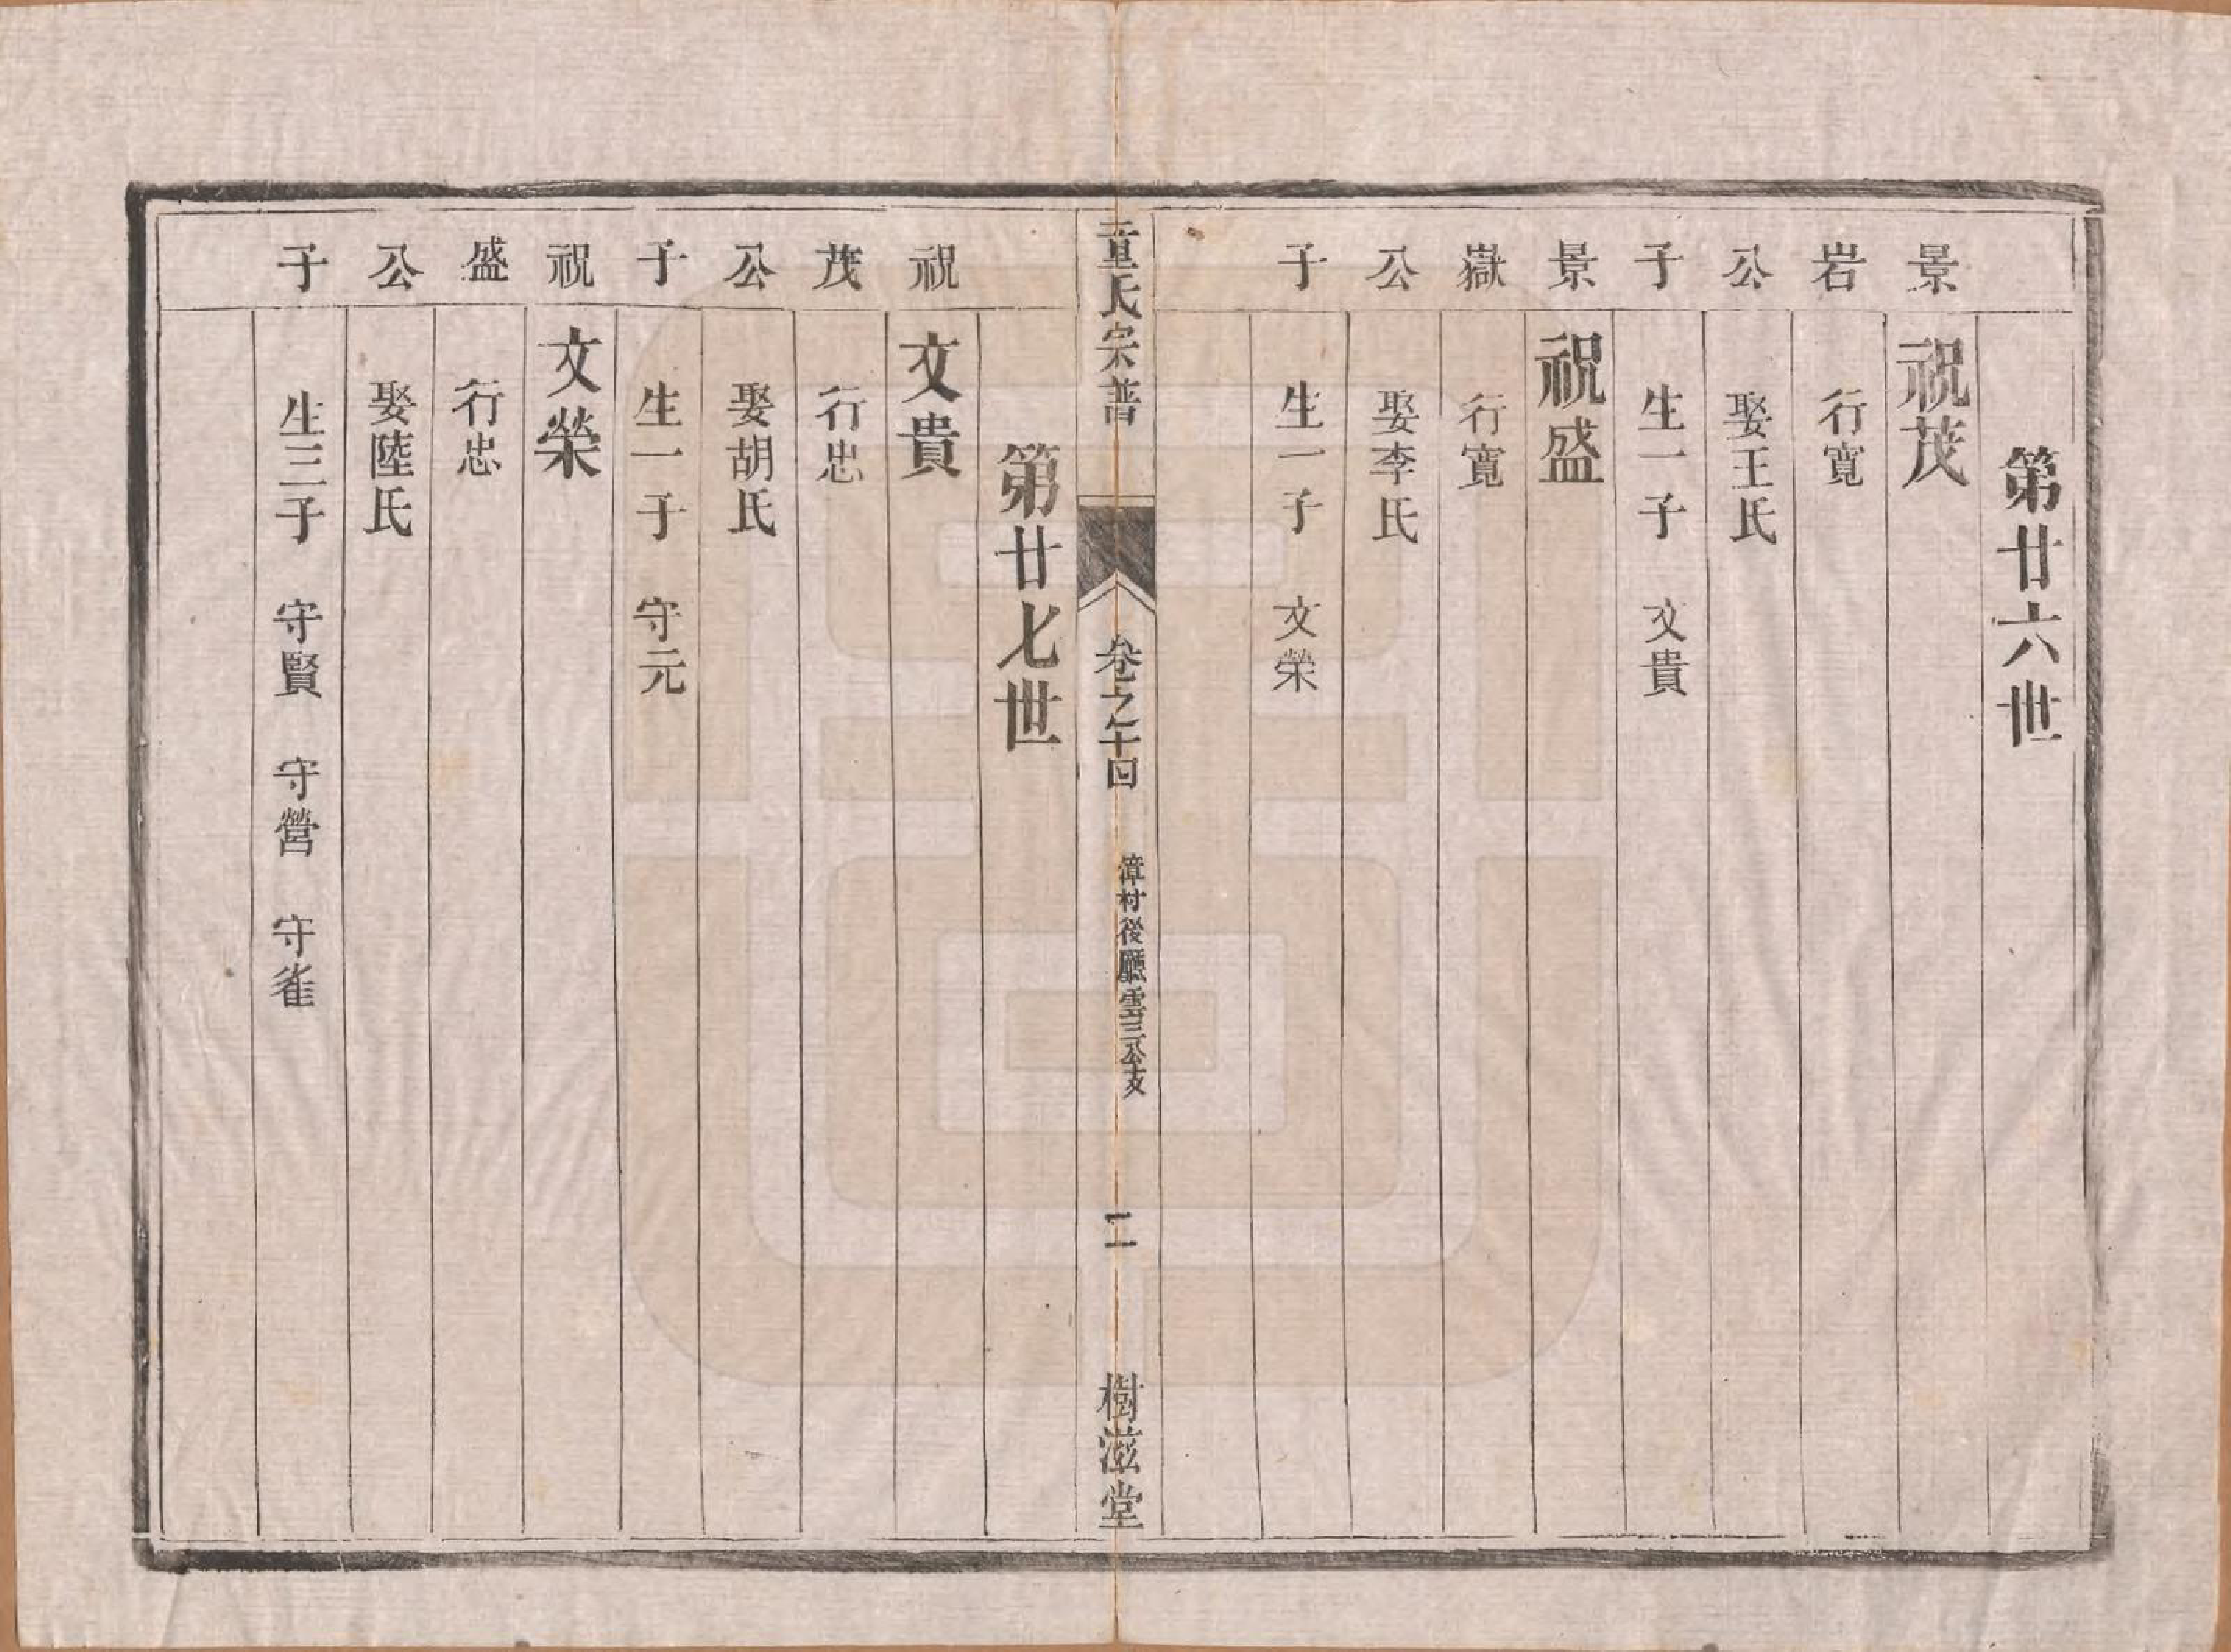 第廿六世
景 祝茂
岩 行寬
公 娶王氏
子 生一子 文貴
景 祝盛
嶽 行寬
公 娶李氏
子 生一子 文榮
童氏宗普 卷之十四 漳村後廳雲三公支 二 樹滋堂
第廿七世
祝 文貴
茂 行忠
公 娶胡氏
子 生一子 守元
祝 文榮
盛 行忠
公 娶陸氏
子 生三子 守賢 守營 守雀